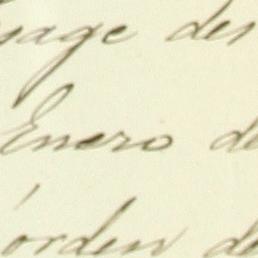 sage des
Enero de
órden de